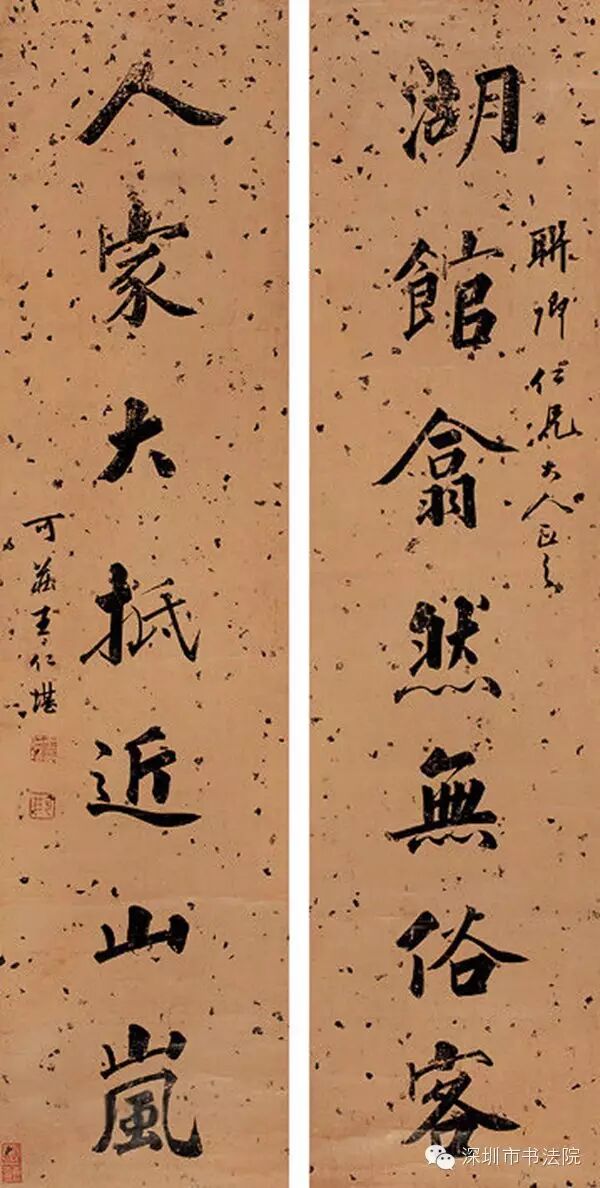 聯卿仁兄大人正之
湖館翕然無俗客
人家大抵近山嵐
可莊王仁堪
深圳市书法院